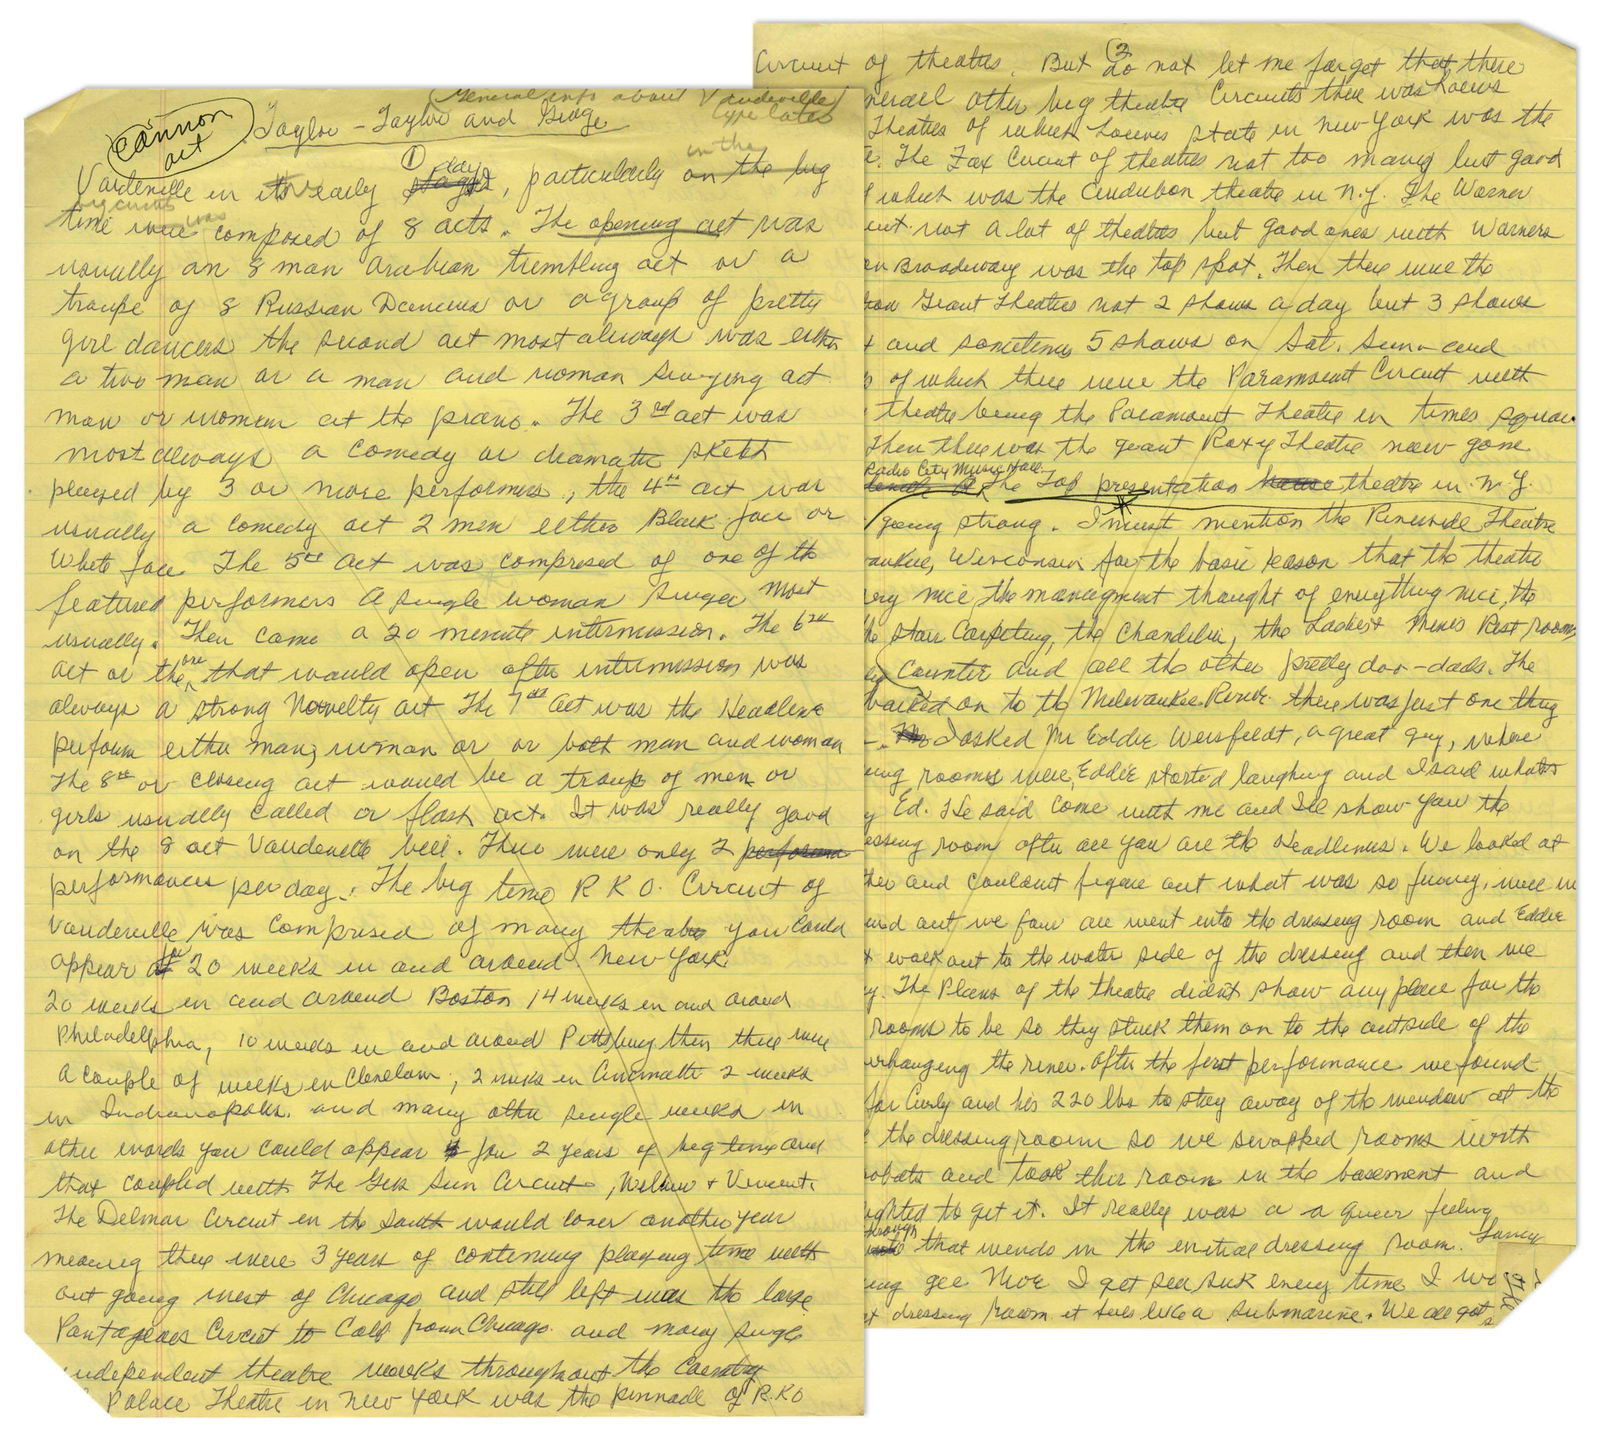 (General info about Vaudeville
type later
Cannon
act
Taylor - Taylor and
①
Vaudeville in its early day, particularly in the big
time was composed of 8 acts. The opening act was
usually an 8 man Arabian tumbling act or a
troupe of 8 Russian Dancers or a group of pretty
girl dancers the second act most always was either
a two man or a man and woman singing act
man or woman at the piano. The 3rd act was
most always a comedy or dramatic sketch
played by 3 or more performers., the 4th act was
usually a comedy act 2 men either Black face or
White face The 5th act was composed of one of the
featured performers A single woman singer most
usually. Then came a 20 minute intermission. The 6th
act or the one that would open after intermission was
always a strong Novelty act The 7th act was the Headline
perform either man, woman or or both man and woman
The 8th or closing act would be a troup of men or
girls usually called or flash act. It was really good
on the 8 act Vaudeville bill. There were only 2 performa
performances per day. The big time R K O. Circuit of
Vaudeville was comprised of many theatres you could
appear 20 weeks in and around New York.
20 weeks in and around Boston 14 weeks in and around
Philadelphia, 10 weeks in and around Pittsburg then there were
a couple of weeks in Cleveland, 2 weeks in Cincinatti 2 weeks
in Indianapolis. and many other single weeks in
other words you could appear for 2 years of big time and
that coupled with The Gus Sun Circuit, Wilbur + Vincent,
The Delmar Circuit in the South would cover another year
meaning there were 3 years of continuing playing time with
out going west of Chicago and still left was the large
Pantages Circuit to Calif from Chicago. and many single
independent theatre weeks throughout the country
Palace Theatre in New York was the pinnacle of R.K.O
②
Circuit of theatres. But do not let me forget that there
other big theatre Circuits there was Loews
Theatres of which Loews State in New York was the
The Fox Circuit of theatres not too many but good
which was the Audubon theatre in N.Y. The Warner
not a lot of theatres but good ones with Warners
on Broadway was the top spot. Then there were the
Grant Theatres not 2 shows a day but 3 shows
and sometimes 5 shows on Sat. Sun - and
of which there were the Paramount Circuit with
theatre being the Paramount Theatre in times square
Then there was the great Roxy Theatre now gone
Radio City Music Hall
The Top presentation house theatre in N.Y.
going strong. I must mention the Riverside Theatre
Wisconsin for the basic reason that the theatre
nice, the managment thought of everything nice, the
stair Carpeting, the chandelier, the Ladies + Men's Rest rooms
Counter and all the other pretty doo-dads. The
backed on to the Milwaukee River there was just one thing
I asked Mr Eddie Weisfeldt, a great guy, where
rooms were, Eddie started laughing and I said whats
Ed. He said come with me and I'll show you the
room after all you are the Headliners. We looked at
and couldnt figure out what was so funny. well we
out we four all went into the dressing room and Eddie
walk out to the water side of the dressing and then we
The Plans of the theatre didn't show any place for the
rooms to be so they stuck them on to the outside of the
overhanging the river. After the first performance we found
for Curly and his 220 lbs to stay away of the window at the
the dressing room so we swapped rooms with
and took their room in the basement and
to get it. It really was a a queer feeling
through
that winds in the initial dressing room.
gee Moe I get sea sick every time I
dressing room it feels like a submarine. We all got